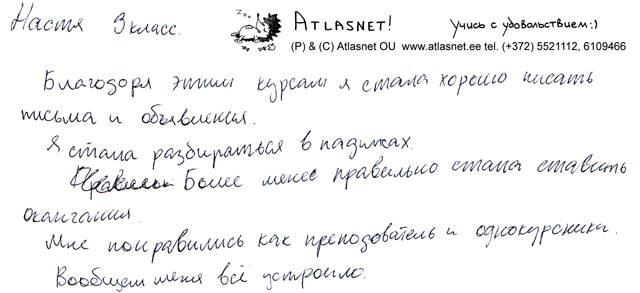 Настя 3 класс.
ATLASNET!
Учись с удовольствием:)
(P) & (C) Atlasnet OU www.atlasnet.ee tel. (+372) 5521112, 6109466
Благодоря этим курсам я стала хорошо писать
письма и объявления.
Я стала разбираться в падижах.
Более менее правильно стала ставить
окангания.
Мне понравились как преподователь и однокурсники.
Вообщем меня всё устроило.